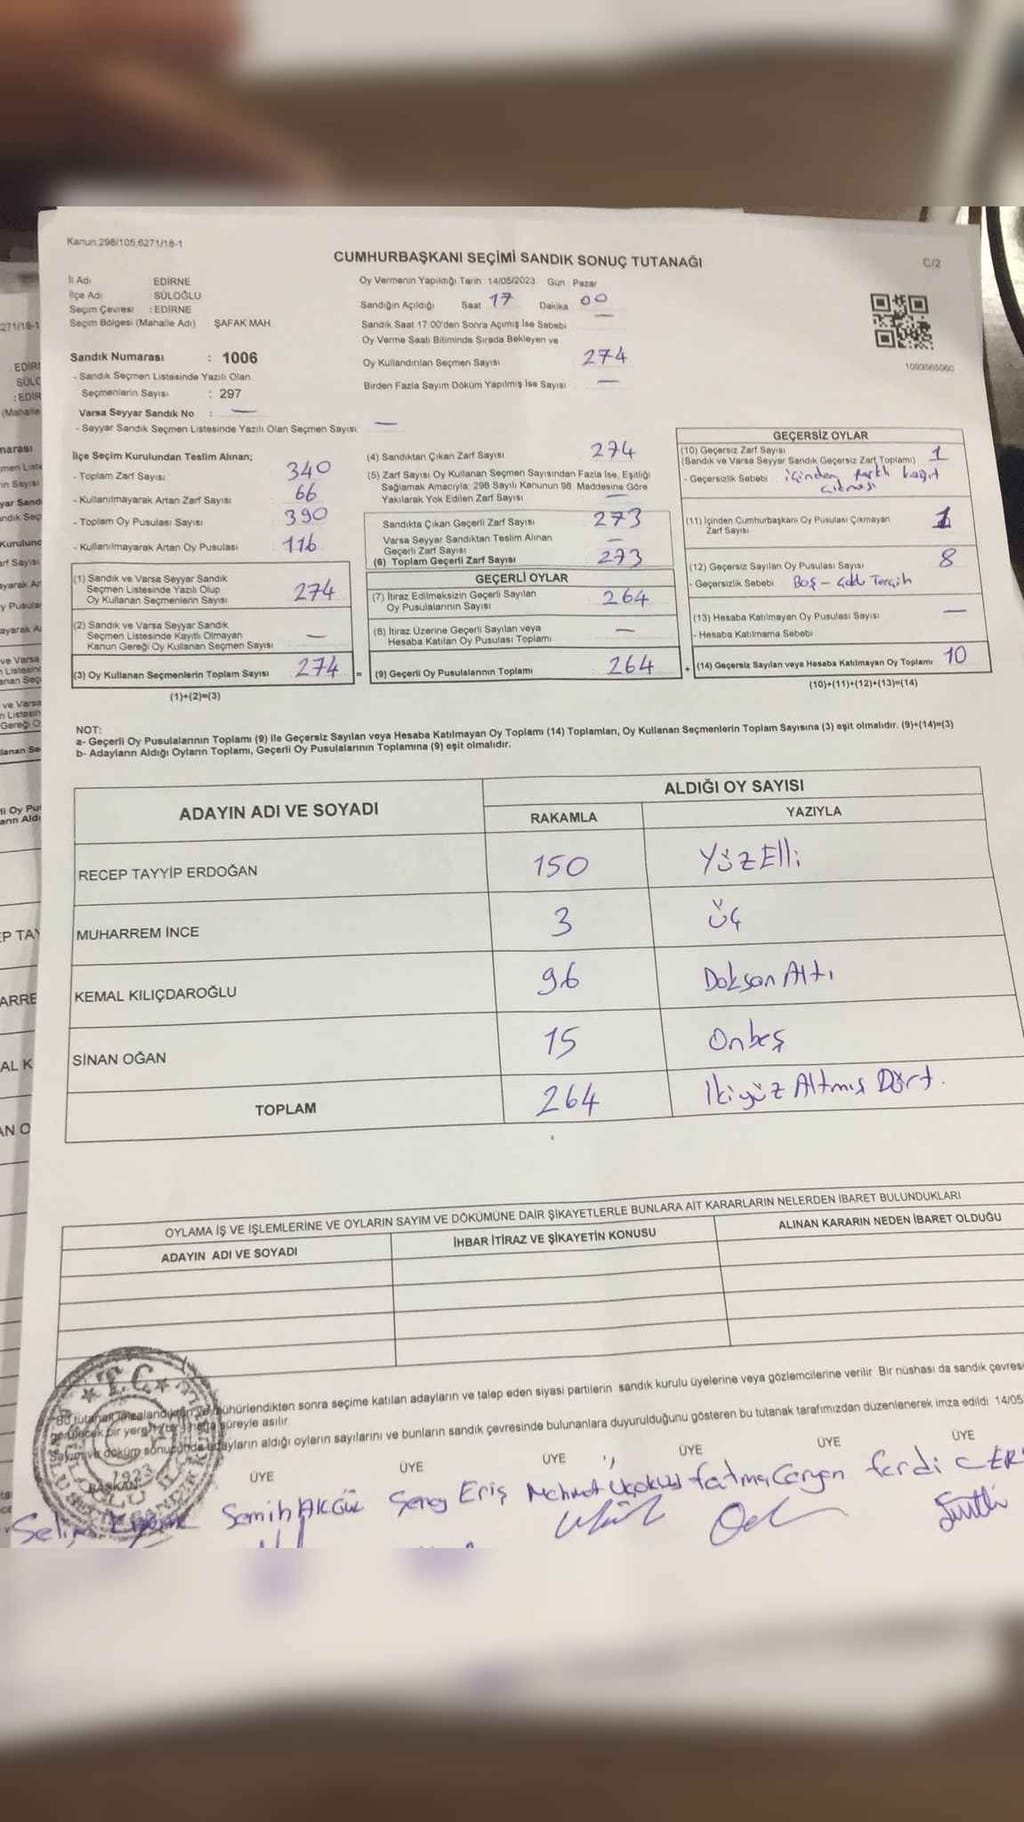 Kanun:298/105,6271/18-1
CUMHURBAŞKANI SEÇİMİ SANDIK SONUÇ TUTANAĞI
C/2
İl Adı EDİRNE
İlçe Adı SÜLOĞLU
Seçim Çevresi : EDİRNE
Seçim Bölgesi (Mahalle Adı) ŞAFAK MAH.
Sandık Numarası : 1006
- Sandık Seçmen Listesinde Yazılı Olan
Seçmenlerin Sayısı : 297
Varsa Seyyar Sandık No : —
- Seyyar Sandık Seçmen Listesinde Yazılı Olan Seçmen Sayısı —
Oy Vermenin Yapıldığı Tarih 14/05/2023 Gün Pazar
Sandığın Açıldığı Saat 17 Dakika 00
Sandık Saat 17:00'den Sonra Açımış İse Sebebi —
Oy Verme Saati Bitiminde Sırada Bekleyen ve
Oy Kullandırılan Seçmen Sayısı 274
Birden Fazla Sayım Döküm Yapılmış İse Sayısı —
İlçe Seçim Kurulundan Teslim Alınan;
- Toplam Zarf Sayısı 340
- Kullanılmayarak Artan Zarf Sayısı 66
- Toplam Oy Pusulası Sayısı 390
- Kullanılmayarak Artan Oy Pusulası 116
(1) Sandık ve Varsa Seyyar Sandık
Seçmen Listesinde Yazılı Olup
Oy Kullanan Seçmenlerin Sayısı 274
(2) Sandık ve Varsa Seyyar Sandık
Seçmen Listesinde Kayıtlı Olmayan
Kanun Gereği Oy Kullanan Seçmen Sayısı —
(3) Oy Kullanan Seçmenlerin Toplam Sayısı 274 =
(1)+(2)=(3)
(4) Sandıktan Çıkan Zarf Sayısı 274
(5) Zarf Sayısı Oy Kullanan Seçmen Sayısından Fazla İse, Eşitliği
Sağlamak Amacıyla; 298 Sayılı Kanunun 98. Maddesine Göre
Yakılarak Yok Edilen Zarf Sayısı —
Sandıkta Çıkan Geçerli Zarf Sayısı 273
Varsa Seyyar Sandıktan Teslim Alınan
Geçerli Zarf Sayısı —
(6) Toplam Geçerli Zarf Sayısı 273
GEÇERLİ OYLAR
(7) İtiraz Edilmeksizin Geçerli Sayılan
Oy Pusulalarının Sayısı 264
(8) İtiraz Üzerine Geçerli Sayılan veya
Hesaba Katılan Oy Pusulası Toplamı —
(9) Geçerli Oy Pusulalarının Toplamı 264 +
GEÇERSİZ OYLAR
(10) Geçersiz Zarf Sayısı
(Sandık ve Varsa Seyyar Sandık Geçersiz Zarf Toplamı) 1
- Geçersizlik Sebebi içinden farklı kağıt
çıkması
(11) İçinden Cumhurbaşkanı Oy Pusulası Çıkmayan
Zarf Sayısı 1
(12) Geçersiz Sayılan Oy Pusulası Sayısı 8
- Geçersizlik Sebebi Boş - Tercih
(13) Hesaba Katılmayan Oy Pusulası Sayısı —
- Hesaba Katılmama Sebebi
(14) Geçersiz Sayılan veya Hesaba Katılmayan Oy Toplamı 10
(10)+(11)+(12)+(13)=(14)
NOT:
a- Geçerli Oy Pusulasının Toplamı (9) ile Geçersiz Sayılan veya Hesaba Katılmayan Oy Toplamı (14) Toplamları, Oy Kullanan Seçmenlerin Toplam Sayısına (3) eşit olmalıdır. (9)+(14)=(3)
b- Adayların Aldığı Oyların Toplamı, Geçerli Oy Pusulalarının Toplamına (9) eşit olmalıdır.
ADAYIN ADI VE SOYADI
ALDIĞI OY SAYISI
RAKAMLA YAZIYLA
RECEP TAYYİP ERDOĞAN 150 YüzElli
MUHARREM İNCE 3 Üç
KEMAL KILIÇDAROĞLU 96 Doksan Altı
SİNAN OĞAN 15 Onbeş
TOPLAM 264 İkiyüz Altmış Dört.
OYLAMA İŞ VE İŞLEMLERİNE VE OYLARIN SAYIM VE DÖKÜMÜNE DAİR ŞİKAYETLERLE BUNLARA AİT KARARLARIN NELERDEN İBARET BULUNDUKLARI
ADAYIN ADI VE SOYADI İHBAR İTİRAZ VE ŞİKAYETİN KONUSU ALINAN KARARIN NEDEN İBARET OLDUĞU
mühürlendikten sonra seçime katılan adayların ve talep eden siyasi partilerin sandık kurulu üyelerine veya gözlemcilerine verilir. Bir nüshası da sandık çevresi
süreyle asılır.
adayların aldığı oyların sayılarını ve bunların sandık çevresinde bulunanlara duyurulduğunu gösteren bu tutanak tarafımızdan düzenlenerek imza edildi. 14/05
T.C.
1923
ÜYE ÜYE ÜYE ÜYE ÜYE ÜYE
Semih AKGÜL Şenay Eriş Mehmet Fatma Ceryan Ferdi